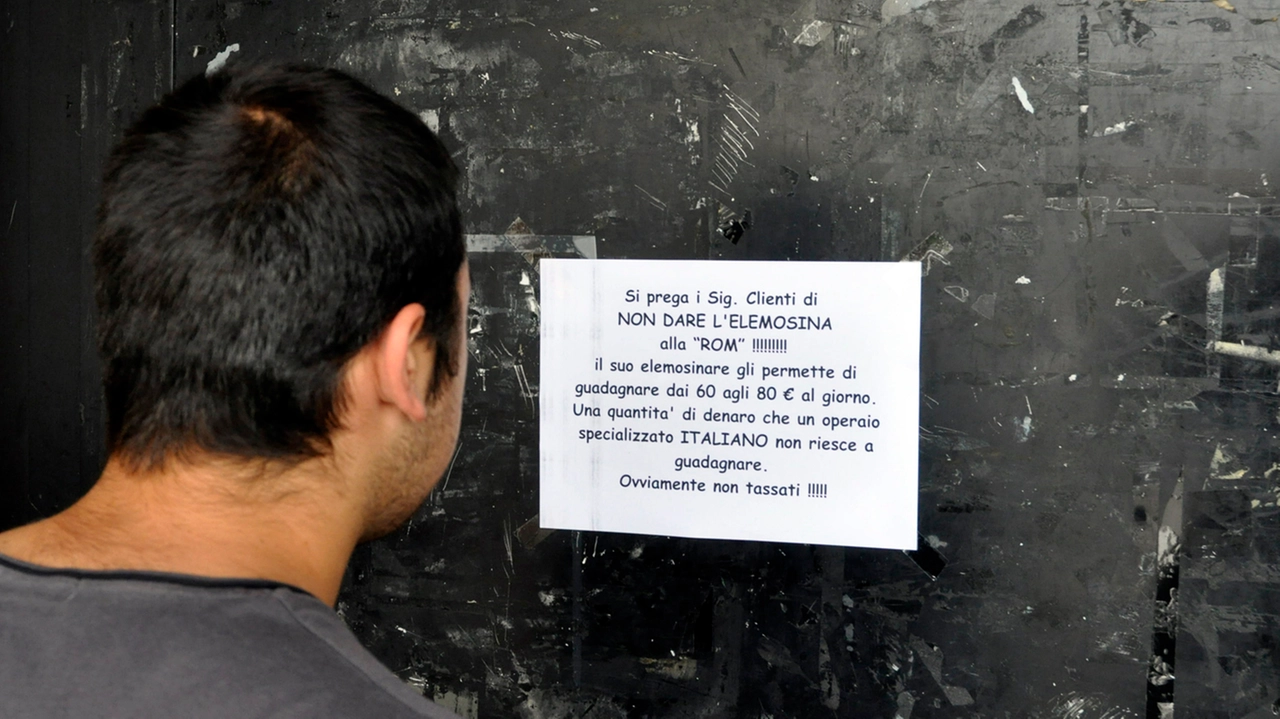 Si prega i Sig. Clienti di
NON DARE L'ELEMOSINA
alla “ROM” !!!!!!!!!
il suo elemosinare gli permette di
guadagnare dai 60 agli 80 € al giorno.
Una quantita' di denaro che un operaio
specializzato ITALIANO non riesce a
guadagnare.
Ovviamente non tassati !!!!!